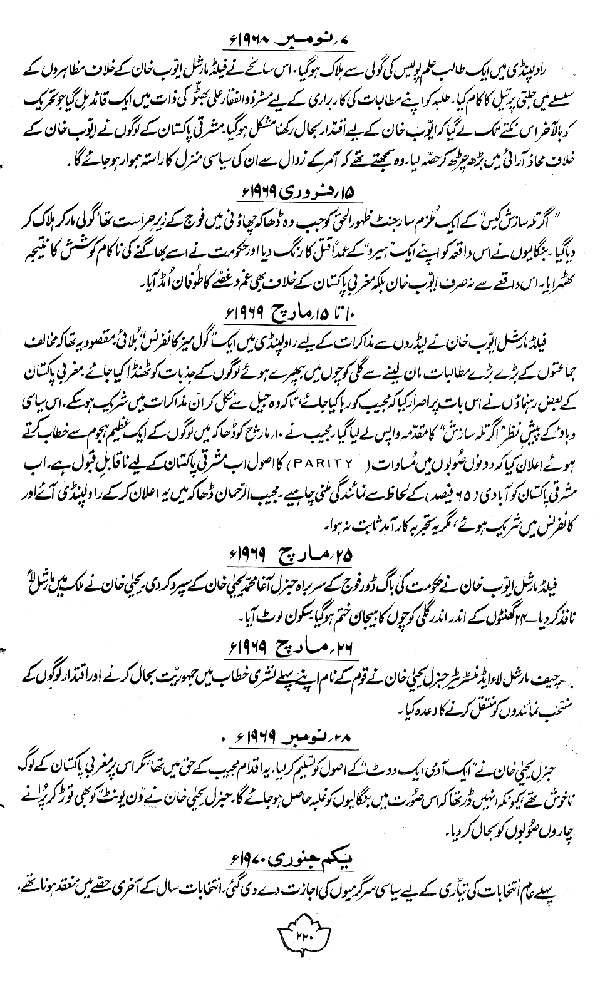 ۷؍ نومبر ۱۹۶۸ء
راولپنڈی میں ایک طالب علم پولیس کی گولی سے ہلاک ہوگیا، اس سانحے نے فیلڈ مارشل ایوب خان کے خلاف مظاہروں کے
سلسلے میں جلتی پر تیل کا کام کیا۔ طلبہ کو اپنے مطالبات کی کاربراری کے لیے مسٹر ذوالفقار علی بھٹو کی ذات میں ایک قائد مل گیا جو تحریک
کو بالآخر اس نکتے تک لے گیا کہ ایوب خان کے لیے اقتدار بحال رکھنا مشکل ہوگیا، مشرقی پاکستان کے لوگوں نے ایوب خان کے
خلاف محاذ آرائی میں بڑھ چڑھ کر حصّہ لیا۔ وہ سمجھتے تھے کہ آمر کے زوال سے ان کی سیاسی منزل کا راستہ ہموار ہو جائے گا۔
۱۵؍ فروری ۱۹۶۹ء
"اگرتلہ سازش کیس" کے ایک ملزم سارجنٹ ظہورالحق کو جب وہ ڈھاکہ چھاؤنی میں فوج کے زیر حراست تھا گولی مار کر ہلاک کر
دیا گیا۔ بنگالیوں نے اس واقعہ کو اپنے ایک "ہیرو" کے عمداً قتل کا رنگ دیا اور حکومت نے اسے بھاگنے کی ناکام کوشش کا نتیجہ
ٹھہرایا۔ اس واقعے سے نہ صرف ایوب خان بلکہ مغربی پاکستان کے خلاف بھی غم و غصّے کا طوفان اُمڈ آیا۔
۱۰ تا ۱۵؍ مارچ ۱۹۶۹ء
فیلڈ مارشل ایوب خان نے لیڈروں سے مذاکرات کے لیے راولپنڈی میں ایک "گول میز کانفرنس" بلائی، مقصود یہ تھا کہ مخالف
جماعتوں کے بڑے بڑے مطالبات مان لینے سے گلی کوچوں میں بپھرے ہوئے لوگوں کے جذبات کو ٹھنڈا کیا جائے، مغربی پاکستان
کے بعض رہنماؤں نے اس بات پر اصرار کیا کہ مجیب کو رہا کیا جائے، تاکہ وہ جیل سے نکل کر ان مذاکرات میں شریک ہو سکے، اس سیاسی
دباؤ کے پیش نظر "اگرتلہ سازش" کا مقدمہ واپس لے لیا گیا، مجیب نے ۱۰؍ مارچ کو ڈھاکہ میں لوگوں کے ایک عظیم ہجوم سے خطاب کرتے
ہوئے اعلان کیا کہ دونوں صوبوں میں مساوات (PARITY) کا اصول اب مشرقی پاکستان کے لیے ناقابل قبول ہے، اب
مشرقی پاکستان کو آبادی (۶۵ فیصد) کے لحاظ سے نمائندگی ملنی چاہیے۔ مجیب الرحمان ڈھاکہ میں یہ اعلان کر کے راولپنڈی آئے اور
کانفرنس میں شریک ہوئے، مگر یہ تجربہ کارآمد ثابت نہ ہوا۔
۲۵؍ مارچ ۱۹۶۹ء
فیلڈ مارشل ایوب خان نے حکومت کی باگ ڈور فوج کے سربراہ جنرل آغا محمد یحییٰ خان کے سپرد کر دی، یحییٰ خان نے ملک میں مارشل لاء
نافذ کر دیا۔ ۲۴ گھنٹوں کے اندر اندر گلی کوچوں کا ہیجان ختم ہوگیا، سکون لوٹ آیا۔
۲۶؍ مارچ ۱۹۶۹ء
چیف مارشل لاء ایڈمنسٹریٹر جنرل یحییٰ خان نے قوم کے نام اپنے پہلے نشری خطاب میں جمہوریت بحال کرنے اور اقتدار لوگوں کے
منتخب نمائندوں کو منتقل کرنے کا وعدہ کیا۔
۲۸؍ نومبر ۱۹۶۹ء
جنرل یحییٰ خان نے "ایک آدمی ایک ووٹ" کے اصول کو تسلیم کر لیا، یہ اقدام مجیب کے حق میں تھا، مگر اس پر مغربی پاکستان کے لوگ
ناخوش تھے کیونکہ انہیں ڈر تھا کہ اس صورت میں بنگالیوں کو غلبہ حاصل ہو جائے گا، جنرل یحییٰ خان نے "ون یونٹ" کو بھی توڑ کر پرانے
چاروں صوبوں کو بحال کر دیا۔
یکم جنوری ۱۹۷۰ء
پہلے عام انتخابات کی تیاری کے لیے سیاسی سرگرمیوں کی اجازت دے دی گئی، انتخابات سال کے آخری حصّے میں منعقد ہونا تھے،
۲۲۰